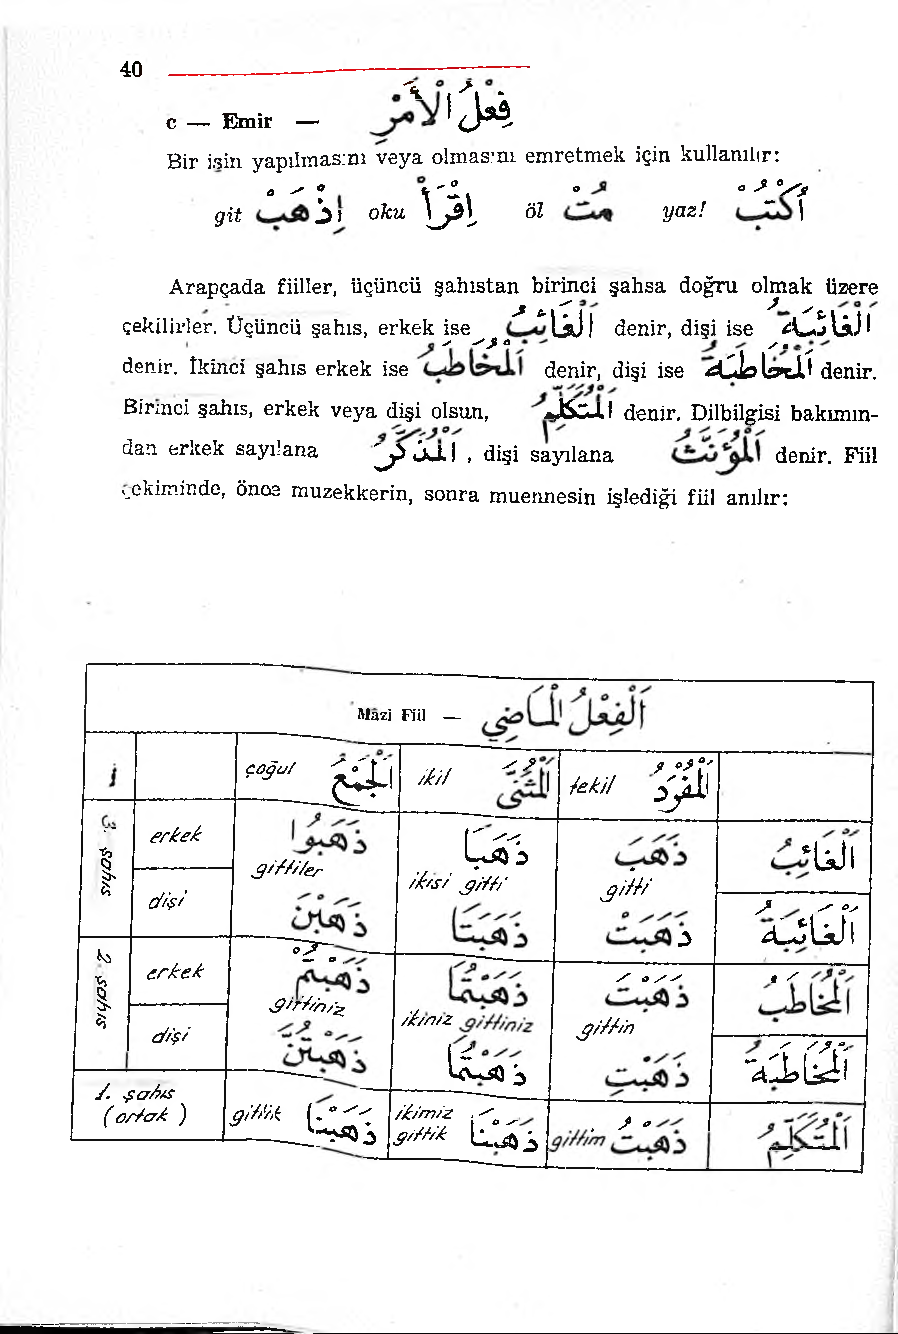 40
c — Emir — فِعْلُ الْأَمْرِ
Bir işin yapılmasını veya olmasını emretmek için kullanılır:
git اِذْهَبْ oku اِقْرَأْ öl مُتْ yaz! أُكْتُبْ
Arapçada fiiller, üçüncü şahıstan birinci şahsa doğru olmak üzere
çekilirler. Üçüncü şahıs, erkek ise اَلْغَائِبُ denir, dişi ise اَلْغَائِبَةُ
denir. İkinci şahıs erkek ise اَلْمُخَاطَبُ denir, dişi ise اَلْمُخَاطَبَةُ denir.
Birinci şahıs, erkek veya dişi olsun, اَلْمُتَكَلِّمُ denir. Dilbilgisi bakımın-
dan erkek sayılana اَلْمُذَكَّرُ , dişi sayılana اَلْمُؤَنَّثُ denir. Fiil
çekiminde, önce muzekkerin, sonra muennesin işlediği fiil anılır:
Mâzi Fiil — اَلْفِعْلُ الْمَاضِي
çoğul اَلْجَمْعُ ikil اَلْمُثَنَّى tekil اَلْمُفْرَدُ
3. şahıs erkek ذَهَبُوا ذَهَبَا ذَهَبَ اَلْغَائِبُ
gittiler ikisi gitti gitti
dişi ذَهَبْنَ ذَهَبَتَا ذَهَبَتْ اَلْغَائِبَةُ
2. şahıs erkek ذَهَبْتُمْ ذَهَبْتُمَا ذَهَبْتَ اَلْمُخَاطَبُ
gittiniz ikiniz gittiniz gittin
dişi ذَهَبْتُنَّ ذَهَبْتُمَا ذَهَبْتِ اَلْمُخَاطَبَةُ
1. şahıs
(ortak) gittik ذَهَبْنَا ikimiz gittik ذَهَبْنَا gittim ذَهَبْتُ اَلْمُتَكَلِّمُ